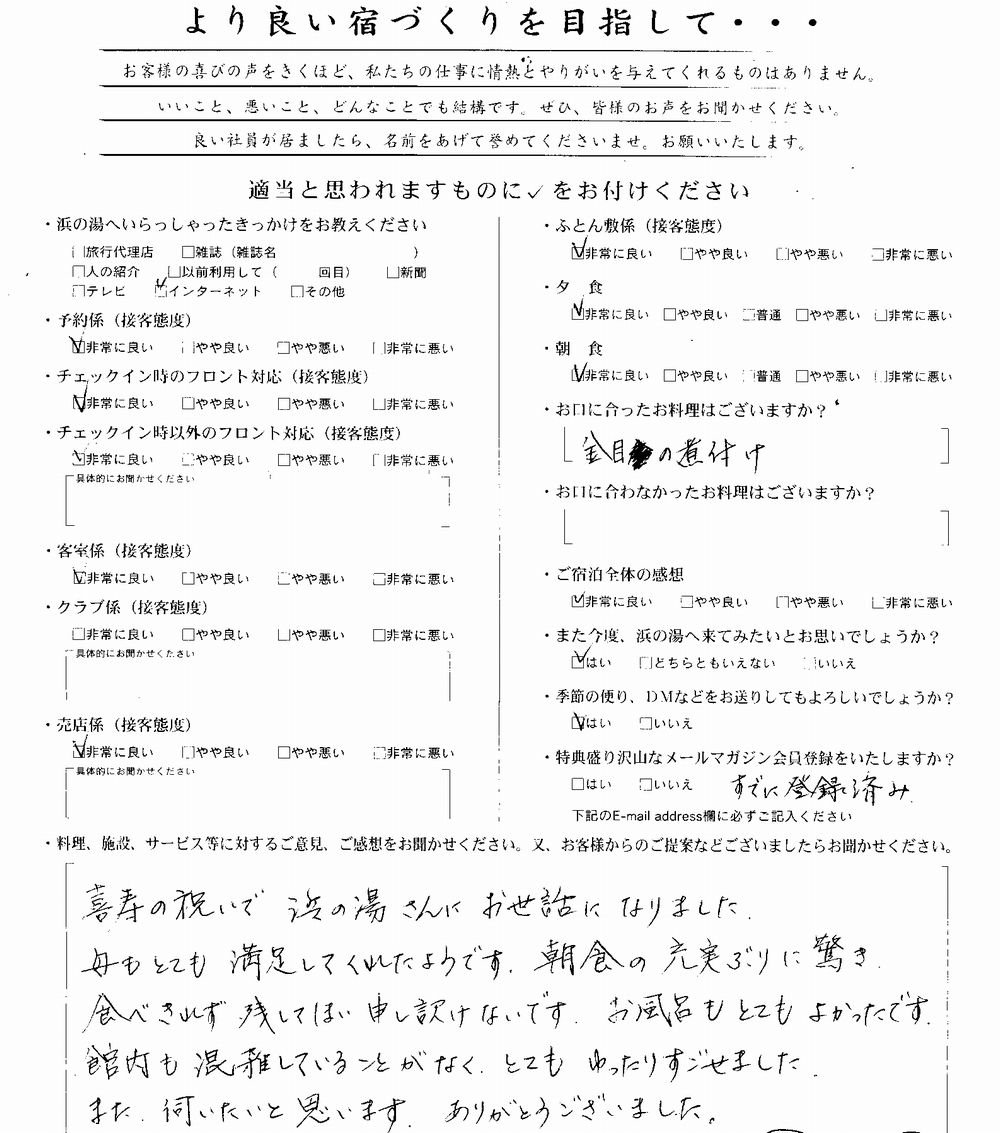 より良い宿づくりを目指して・・・
お客様の喜びの声をきくほど、私たちの仕事に情熱とやりがいを与えてくれるものはありません。
いいこと、悪いこと、どんなことでも結構です。ぜひ、皆様のお声をお聞かせください。
良い社員が居ましたら、名前をあげて誉めてくださいませ。お願いいたします。
適当と思われますものに✓をお付けください
・浜の湯へいらっしゃったきっかけをお教えください
□旅行代理店 □雑誌（雑誌名 ）
□人の紹介 □以前利用して（ 回目） □新聞
□テレビ ☑インターネット □その他
・予約係（接客態度）
☑非常に良い □やや良い □やや悪い □非常に悪い
・チェックイン時のフロント対応（接客態度）
☑非常に良い □やや良い □やや悪い □非常に悪い
・チェックイン時以外のフロント対応（接客態度）
☑非常に良い □やや良い □やや悪い □非常に悪い
具体的にお聞かせください
・客室係（接客態度）
☑非常に良い □やや良い □やや悪い □非常に悪い
・クラブ係（接客態度）
□非常に良い □やや良い □やや悪い □非常に悪い
具体的にお聞かせください
・売店係（接客態度）
☑非常に良い □やや良い □やや悪い □非常に悪い
具体的にお聞かせください
・ふとん敷係（接客態度）
☑非常に良い □やや良い □やや悪い □非常に悪い
・夕 食
☑非常に良い □やや良い □普通 □やや悪い □非常に悪い
・朝 食
☑非常に良い □やや良い □普通 □やや悪い □非常に悪い
・お口に合ったお料理はございますか？
金目の煮付け
・お口に合わなかったお料理はございますか？
・ご宿泊全体の感想
☑非常に良い □やや良い □やや悪い □非常に悪い
・また今度、浜の湯へ来てみたいとお思いでしょうか？
☑はい □どちらともいえない □いいえ
・季節の便り、DMなどをお送りしてもよろしいでしょうか？
☑はい □いいえ
・特典盛り沢山なメールマガジン会員登録をいたしますか？
□はい □いいえ すでに登録済み
下記のE-mail address欄に必ずご記入ください
・料理、施設、サービス等に対するご意見、ご感想をお聞かせください。又、お客様からのご提案などございましたらお聞かせください。
喜寿の祝いで 浜の湯さんに お世話に なりました.
母も とても 満足してくれたようです. 朝食の 充実ぶりに 驚き.
食べきれず 残してしまい 申し訳けないです. お風呂も とても よかったです.
館内も 混雑していることがなく. とても ゆったりすごせました.
また. 伺いたいと 思います. ありがとうございました。